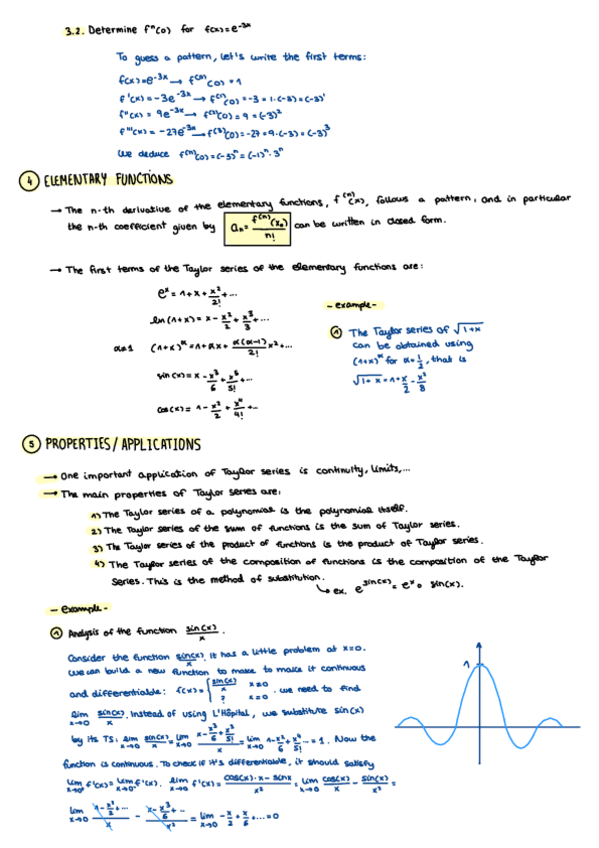 3.2. Determine fⁿ(0) for f(x)=e^-3x
To guess a pattern, let's write the first terms:
f(x)=e^-3x → f^(0)(0)=1
f'(x)=-3e^-3x → f^(1)(0)=-3=1·(-3)=(-3)¹
f''(x)=9e^-3x → f^(2)(0)=9=(-3)²
f'''(x)=-27e^-3x → f^(3)(0)=-27=9·(-3)=(-3)³
We deduce f^(n)(0)=(-3)ⁿ=(-1)ⁿ·3ⁿ
④ ELEMENTARY FUNCTIONS
→ The n-th derivative of the elementary functions, f^(n)(x), follows a pattern, and in particular
the n-th coefficient given by aₙ=f^(n)(x₀)/n! can be written in closed form.
→ The first terms of the Taylor series of the elementary functions are:
e^x=1+x+x²/2!+...
ln(1+x)=x-x²/2+x³/3+...
α≠1 (1+x)^α=1+αx+α(α-1)/2! x²+...
sin(x)=x-x³/6+x⁵/5!+...
cos(x)=1-x²/2+x⁴/4!+...
-example-
① The Taylor series of √1+x
can be obtained using
(1+x)^α for α=1/2, that is
√1+x=1+x/2-x²/8
⑤ PROPERTIES/APPLICATIONS
→ One important application of Taylor series is continuity, limits,...
→ The main properties of Taylor series are:
1) The Taylor series of a polynomial is the polynomial itself.
2) The Taylor series of the sum of functions is the sum of Taylor series.
3) The Taylor series of the product of functions is the product of Taylor series.
4) The Taylor series of the composition of functions is the composition of the Taylor
series. This is the method of substitution.
ex. e^sin(x)=e^x∘ sin(x).
-example-
① Analysis of the function sin(x)/x.
Consider the function sin(x)/x. It has a little problem at x=0.
We can build a new function to make to make it continuous
and differentiable: f(x)={sin(x)/x x≠0 ? x=0. We need to find
lim x→0 sin(x)/x. Instead of using L'Hôpital, we substitute sin(x)
by its TS: lim x→0 sin(x)/x=lim x→0 x-x³/6+x⁵/5!/x=lim x→0 1-x²/6+x⁴/5!...=1. Now the
function is continuous. To check if it's differentiable, it should satisfy
lim x→0⁻ f'(x)=lim x→0⁺ f'(x). lim x→0 f'(x)=cos(x)·x-sinx/x²=lim x→0 cos(x)/x-sin(x)/x²=
lim x→0 1-x²/2+.../x - x-x³/6+.../x² =lim x→0 -x/2+x/6+...=0
1